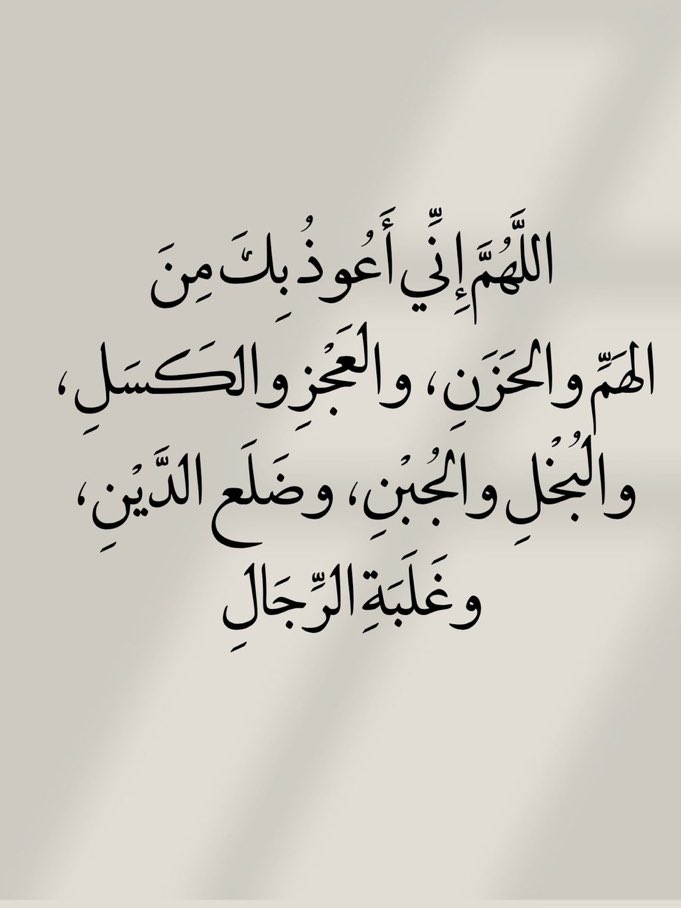 اللَّهُمَّ إِنِّي أَعُوذُ بِكَ مِنَ
الهَمِّ والحَزَنِ، والعَجْزِ والكَسَلِ،
والبُخْلِ والجُبْنِ، وضَلَع الدَّيْنِ،
وغَلَبَةِ الرِّجَالِ